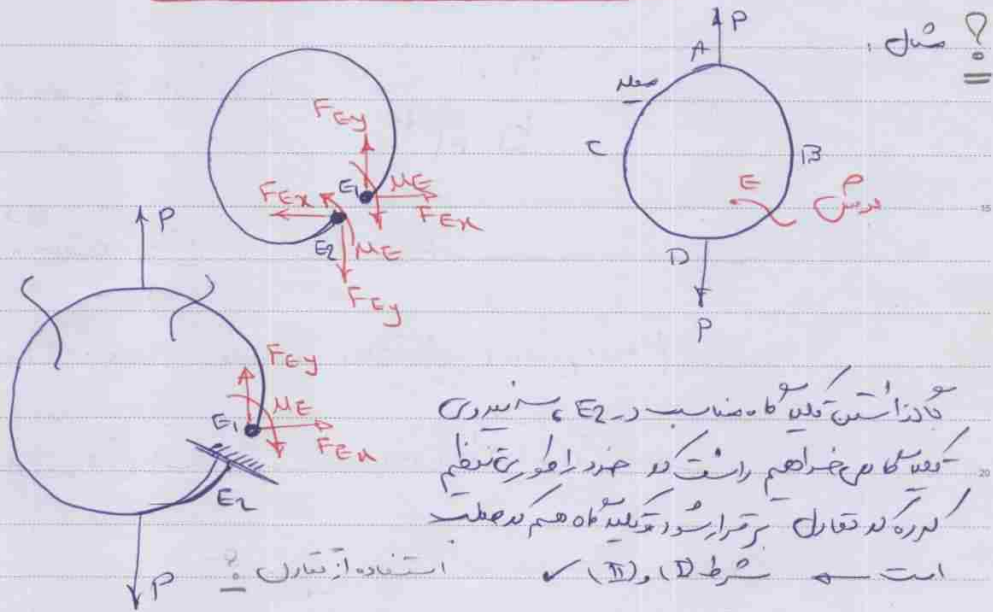 مثال :
P
A
صلب
C
B
E
برش
D
P
FEy
E1
ME
FEx
FEx
E2
ME
FEy
P
FEy
ME
E1
FEx
E2
P
با گذاشتن تکیه گاه مناسب در E2 ، سه نیروی
تکیه گاهی خواهیم داشت که خود را طوری تنظیم
کرده که تعادل برقرار شود و تکیه گاه هم که صلب
است ← شرط (I) و (II) ✓
استفاده از تقارن ؟